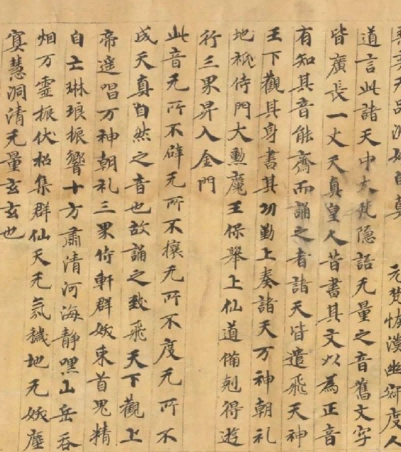 元梵恢漠幽寂度人
道言此諸天中大梵隱語无量之音舊文字
皆廣長一丈天真皇人昔書其文以為正音
有知其音能齋而誦之者諸天皆遣飛天神
王下觀其身書其功勤上奏諸天万神朝礼
地祇侍門大勳魔王保舉上仙道備剋得遊
行三界昇入金門
此音无所不辟无所不禳无所不度无所不
成天真自然之音也故誦之致飛天下觀上
帝遥唱万神朝礼三界侍軒群妖束首鬼精
自亡琳琅振響十方肅清河海静嘿山岳吞
烟万靈振伏招集群仙天无氛穢地无妖塵
冥慧洞清无量玄玄也